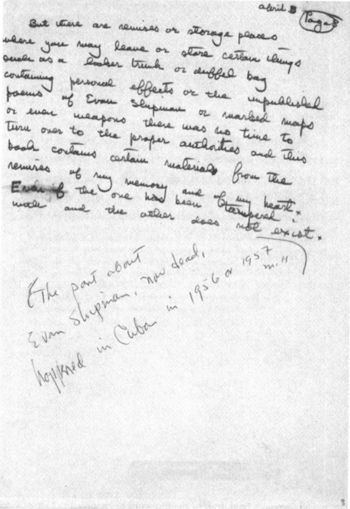 april 3 Page
But there are remises or storage places
where you may leave or store certain things
such as a locker trunk or duffel bag
containing personal effects or the unpublished
poems of Evan Shipman or marked maps
or even weapons there was no time to
turn over to the proper authorities and this
book contains certain materials from the
remises of my memory and of my heart.
Even if the one has been tampered
with and the other does not exist.
(The part about
Evan Shipman, now dead,
happened in Cuba in 1956 or 1957
m.H.